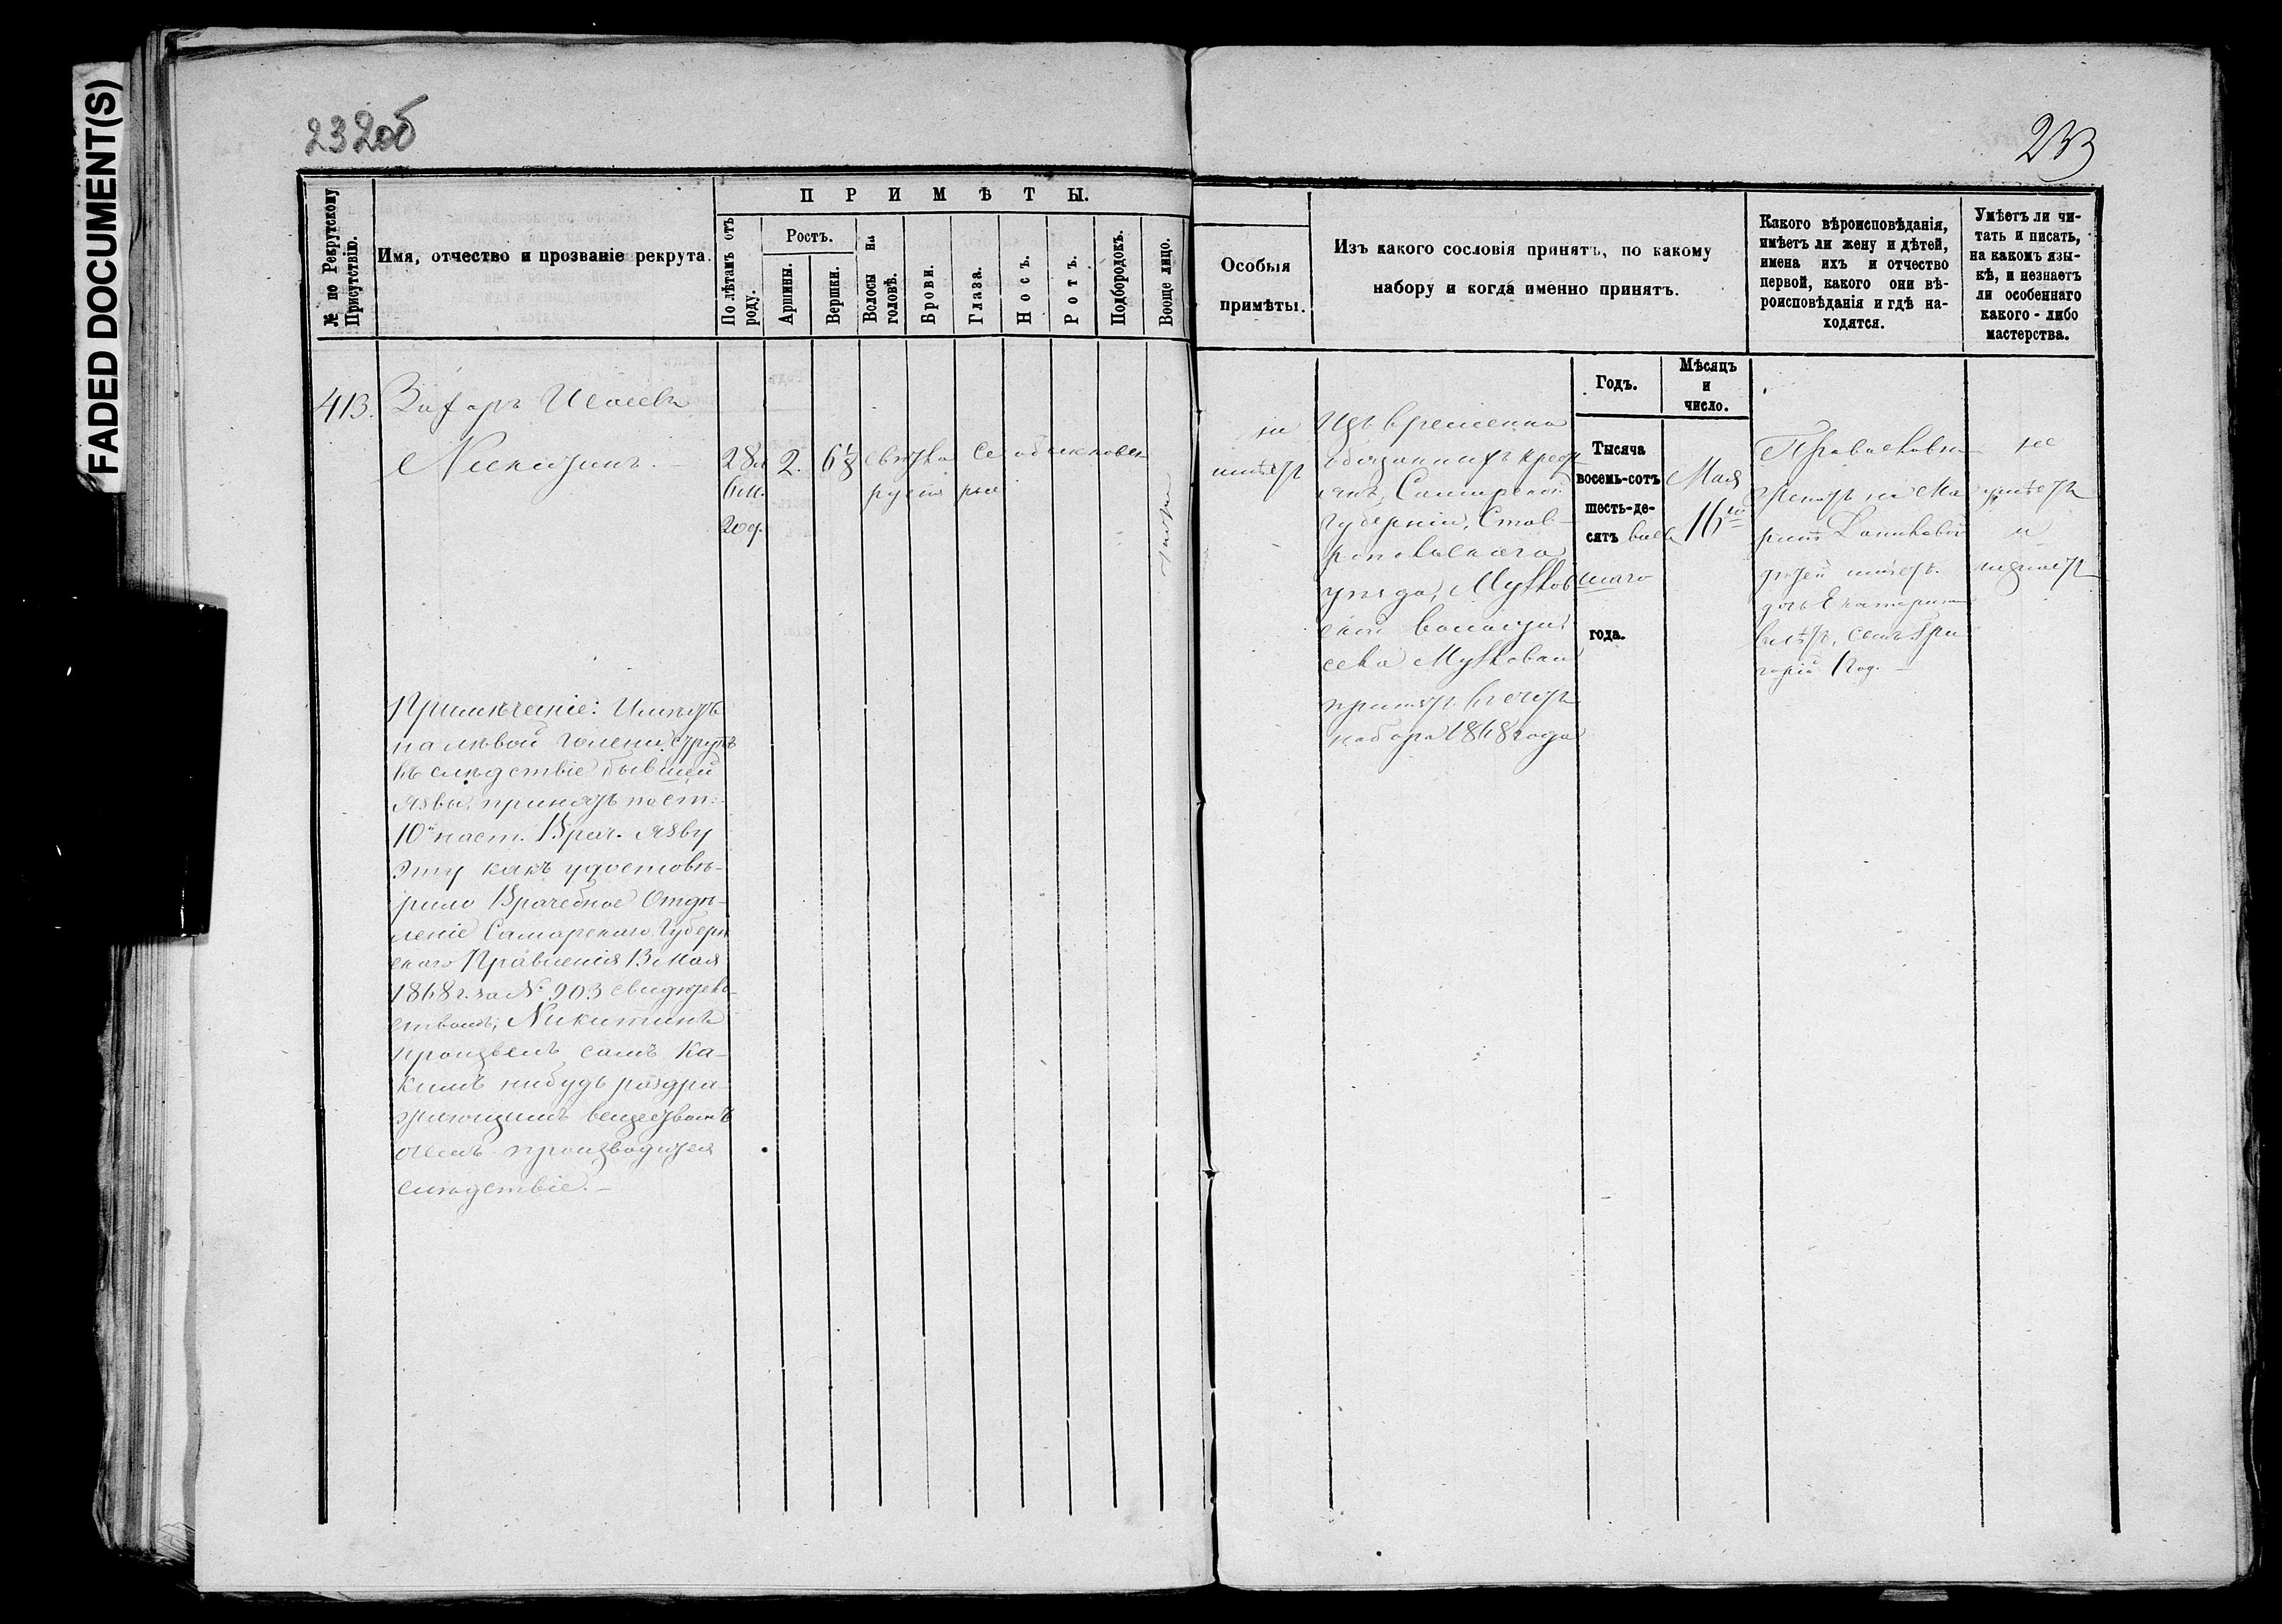 FADED DOCUMENT(S)
232об
233
№ по Рекрутскому Присутствію.
Имя, отчество и прозваніе рекрута.
ПРИМѢТЫ.
По лѣтамъ отъ роду.
Ростъ.
Аршины.
Вершки.
Волосы на головѣ.
Брови.
Глаза.
Носъ.
Ротъ.
Подбородокъ.
Вооще лицо.
Особыя
примѣты.
Изъ какого сословія принятъ, по какому
набору и когда именно принятъ.
Годъ.
Мѣсяцъ
и
число.
Какого вѣроисповѣданія,
имѣетъ ли жену и дѣтей,
имена ихъ и отчество
первой, какого они вѣ-
роисповѣданія и гдѣ на-
ходятся.
Умѣетъ ли чи-
тать и писать,
на какомъ язы-
кѣ, и незнаетъ
ли особеннаго
какого-либо
мастерства.
413.
Захаръ
Никитинъ.
28л
6м.
20д.
2.
6 1/8
свѣтло
русыя
се
рые
обыкновен
Примѣчаніе: Имѣетъ
на лѣвой голени струпъ
въ слѣдствіе бывшей
язвы, принятъ по ст:
10й наст. Врач. Язву
эту какъ удостовѣ-
рило Врачебное Отдѣ-
леніе Самарскаго Губерн
скаго Правленія 13 Мая
1868 г. за № 903 свидѣтель-
ствомъ, Никитинъ
произвелъ самъ ка-
кимъ нибудь раздра-
жающимъ веществомъ
о чемъ производится
слѣдствіе.
не
имѣетъ
Изъ временно
обязанныхъ кресть
янъ, Самарской
губерніи, Став-
ропольскаго
уѣзда,
ской волости
села
принятъ въ счетъ
набора 1868 года
Тысяча
восемь-сотъ
шесть-де-
сятъ вось
маго
года.
Мая
16го
Православна
женатъ на Ма
рьѣ
дѣтей имѣетъ
дочь Екатерину
лѣтъ, сынъ Гри
горій 1 год.
не
умѣетъ
и
незнаетъ